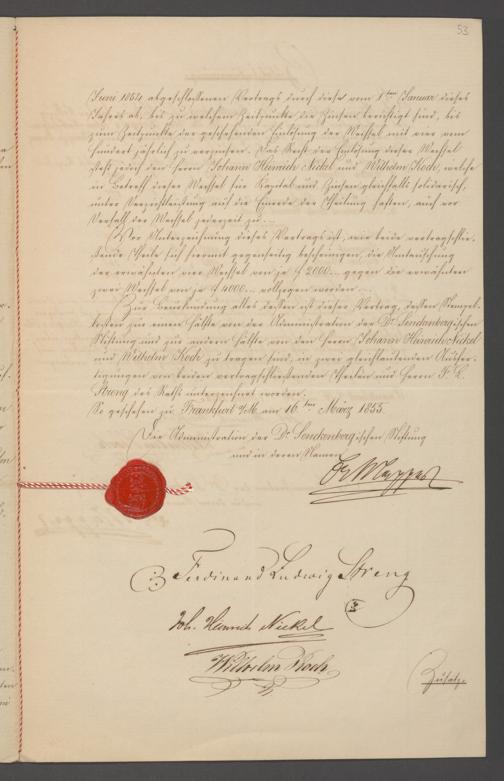 53
Juni 1854 abgeschlossenen Vertrags durch diese vom 1ten Januar dieses
Jahres ab, bis zu welchem Zeitpunkte die Zinsen berichtigt sind, bis
zum Zeitpunkte der geschehenden Einlösung der Wechsel mit vier vom
Hundert jährlich zu verzinsen. Das Recht der Einlösung dieser Wechsel
steht jedoch den Herrn Johann Heinrich Nickel und Wilhelm Koch, welche
in Betreff dieser Wechsel für Kapital und Zinsen gleichfalls solidarisch,
unter Verzichtleistung auf die Einrede der Theilung haften, auch vor
Verfall der Wechsel jederzeit zu.
Vor Unterzeichnung dieses Vertrags ist, wie beide vertragschlie-
ßende Theile sich hiermit gegenseitig bescheinigen, die Umtauschung
der erwähnten vier Wechsel von je f 2000 gegen die erwähnten
zwei Wechsel von je f 4000 vollzogen worden.
Zur Beurkundung alles dessen ist dieser Vertrag, dessen Stempel-
kosten zur einen Hälfte von der Administration der Dr. Senckenbergischen
Stiftung und zur andern Hälfte von den Herrn Johann Heinrich Nickel
und Wilhelm Koch zu tragen sind, in zwei gleichlautenden Ausfer-
tigungen von beiden vertragschließenden Theilen und Herrn F. L.
Streng des Raths unterzeichnet worden.
So geschehen zu Frankfurt a/M. am 16ten März 1855.
Die Administration der Dr. Senckenbergischen Stiftung
und in deren Namen
Ferdinand Ludwig Streng
Joh. Heinrich Nickel
Wilhelm Koch
Zusatz